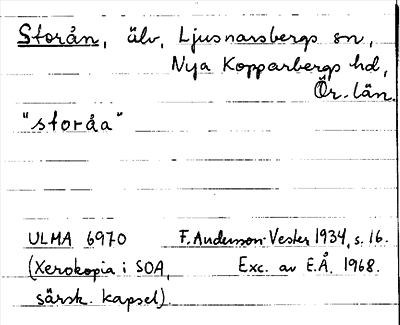 Storån, älv, Ljusnarsbergs sn,
Nya Kopparbergs hd,
Ör. län.
"storåa"
ULMA 6970 F. Andersson-Vester 1934, s. 16.
(Xerokopia i SOA, Exc. av E.Å. 1968.
särsk. kapsel).